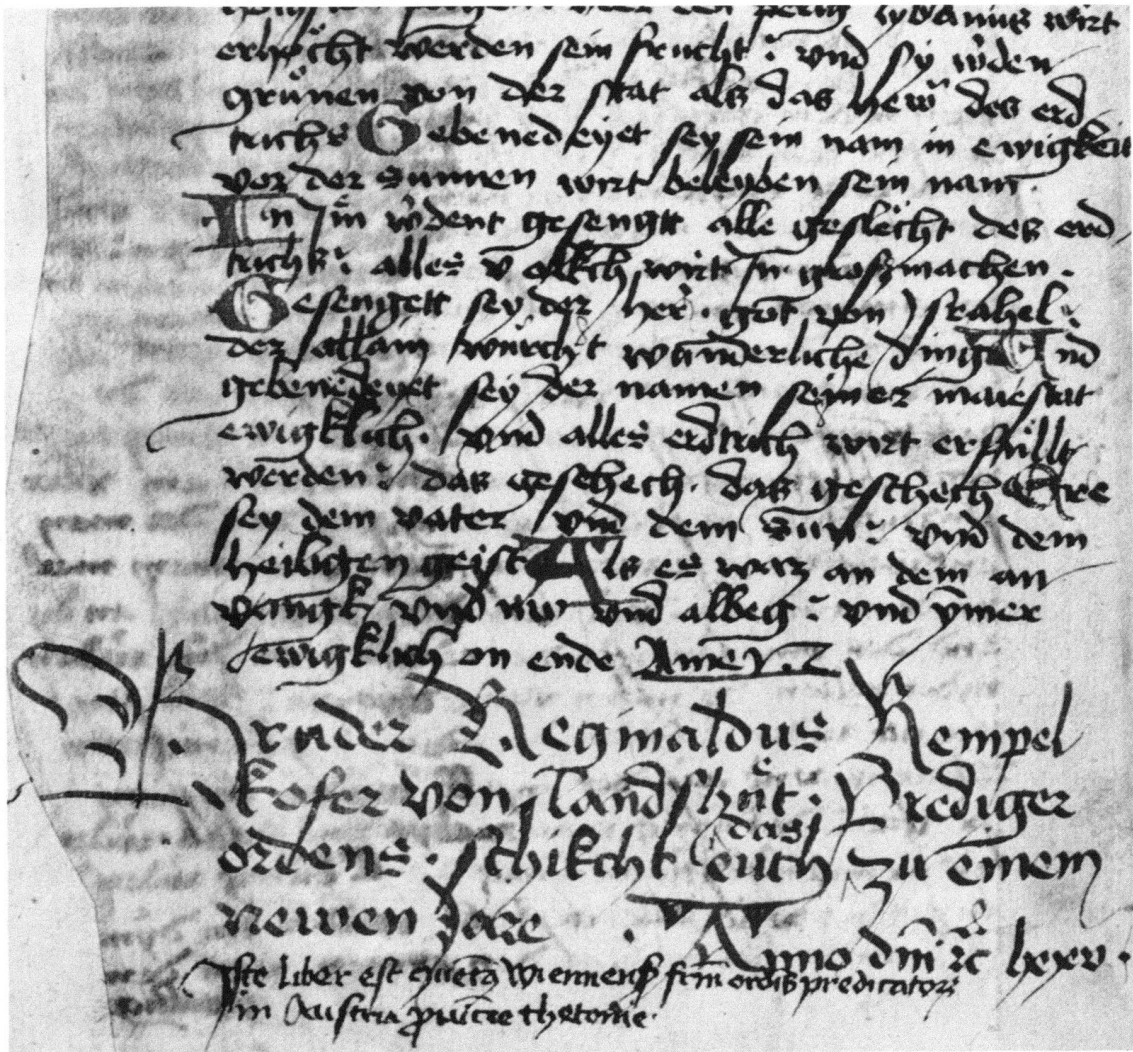 perig lybanus wirt
erhöcht werden sein frucht : vnd sy w̉den
grünen von der stat als das hew des erd
trichs Gebenedeyet sey sein nam in ewigkeit
vor der sunnen wirt beleyben sein nam
In im w̉dent gesengtt alle geslächt des erd
trichs : alles volkch wirt in grozmachen .
Gesengett sey der her . got von Israhel :
der allain würcht wunderliche ding Und
gebenedeyet sey der namen seiner maiestat
ewigklich . vnd alles erdtrich wirt erfüllt
werden : das geschech . das geschech Ere
sey dem vater vnd dem sun : vnd dem
heiligen geist Als es waz an dem an
vangk vnd nw vnd albeg : vnd ymer
ewigklich on ende Amen .
Bruder Reginaldus Rempel
kofer von landshůt . Prediger
ordens . schikcht das euch zu einem
newen Jare . Anno dn̄i ꝛc̄ lxxv .
Iste liber est 9uēt9 Wiennens̄ fr̄m ordīs predicatorꝝ
in Austria puīcie thetonie .